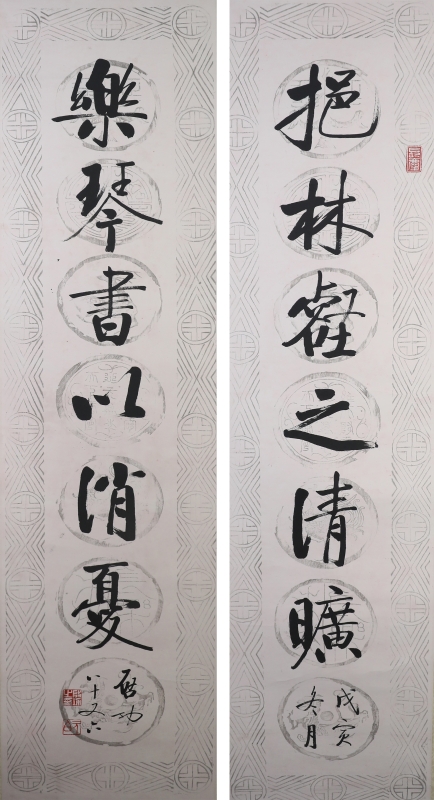 挹林壑之清曠
戊寅
冬月
樂琴書以消憂
啓功
八十又六